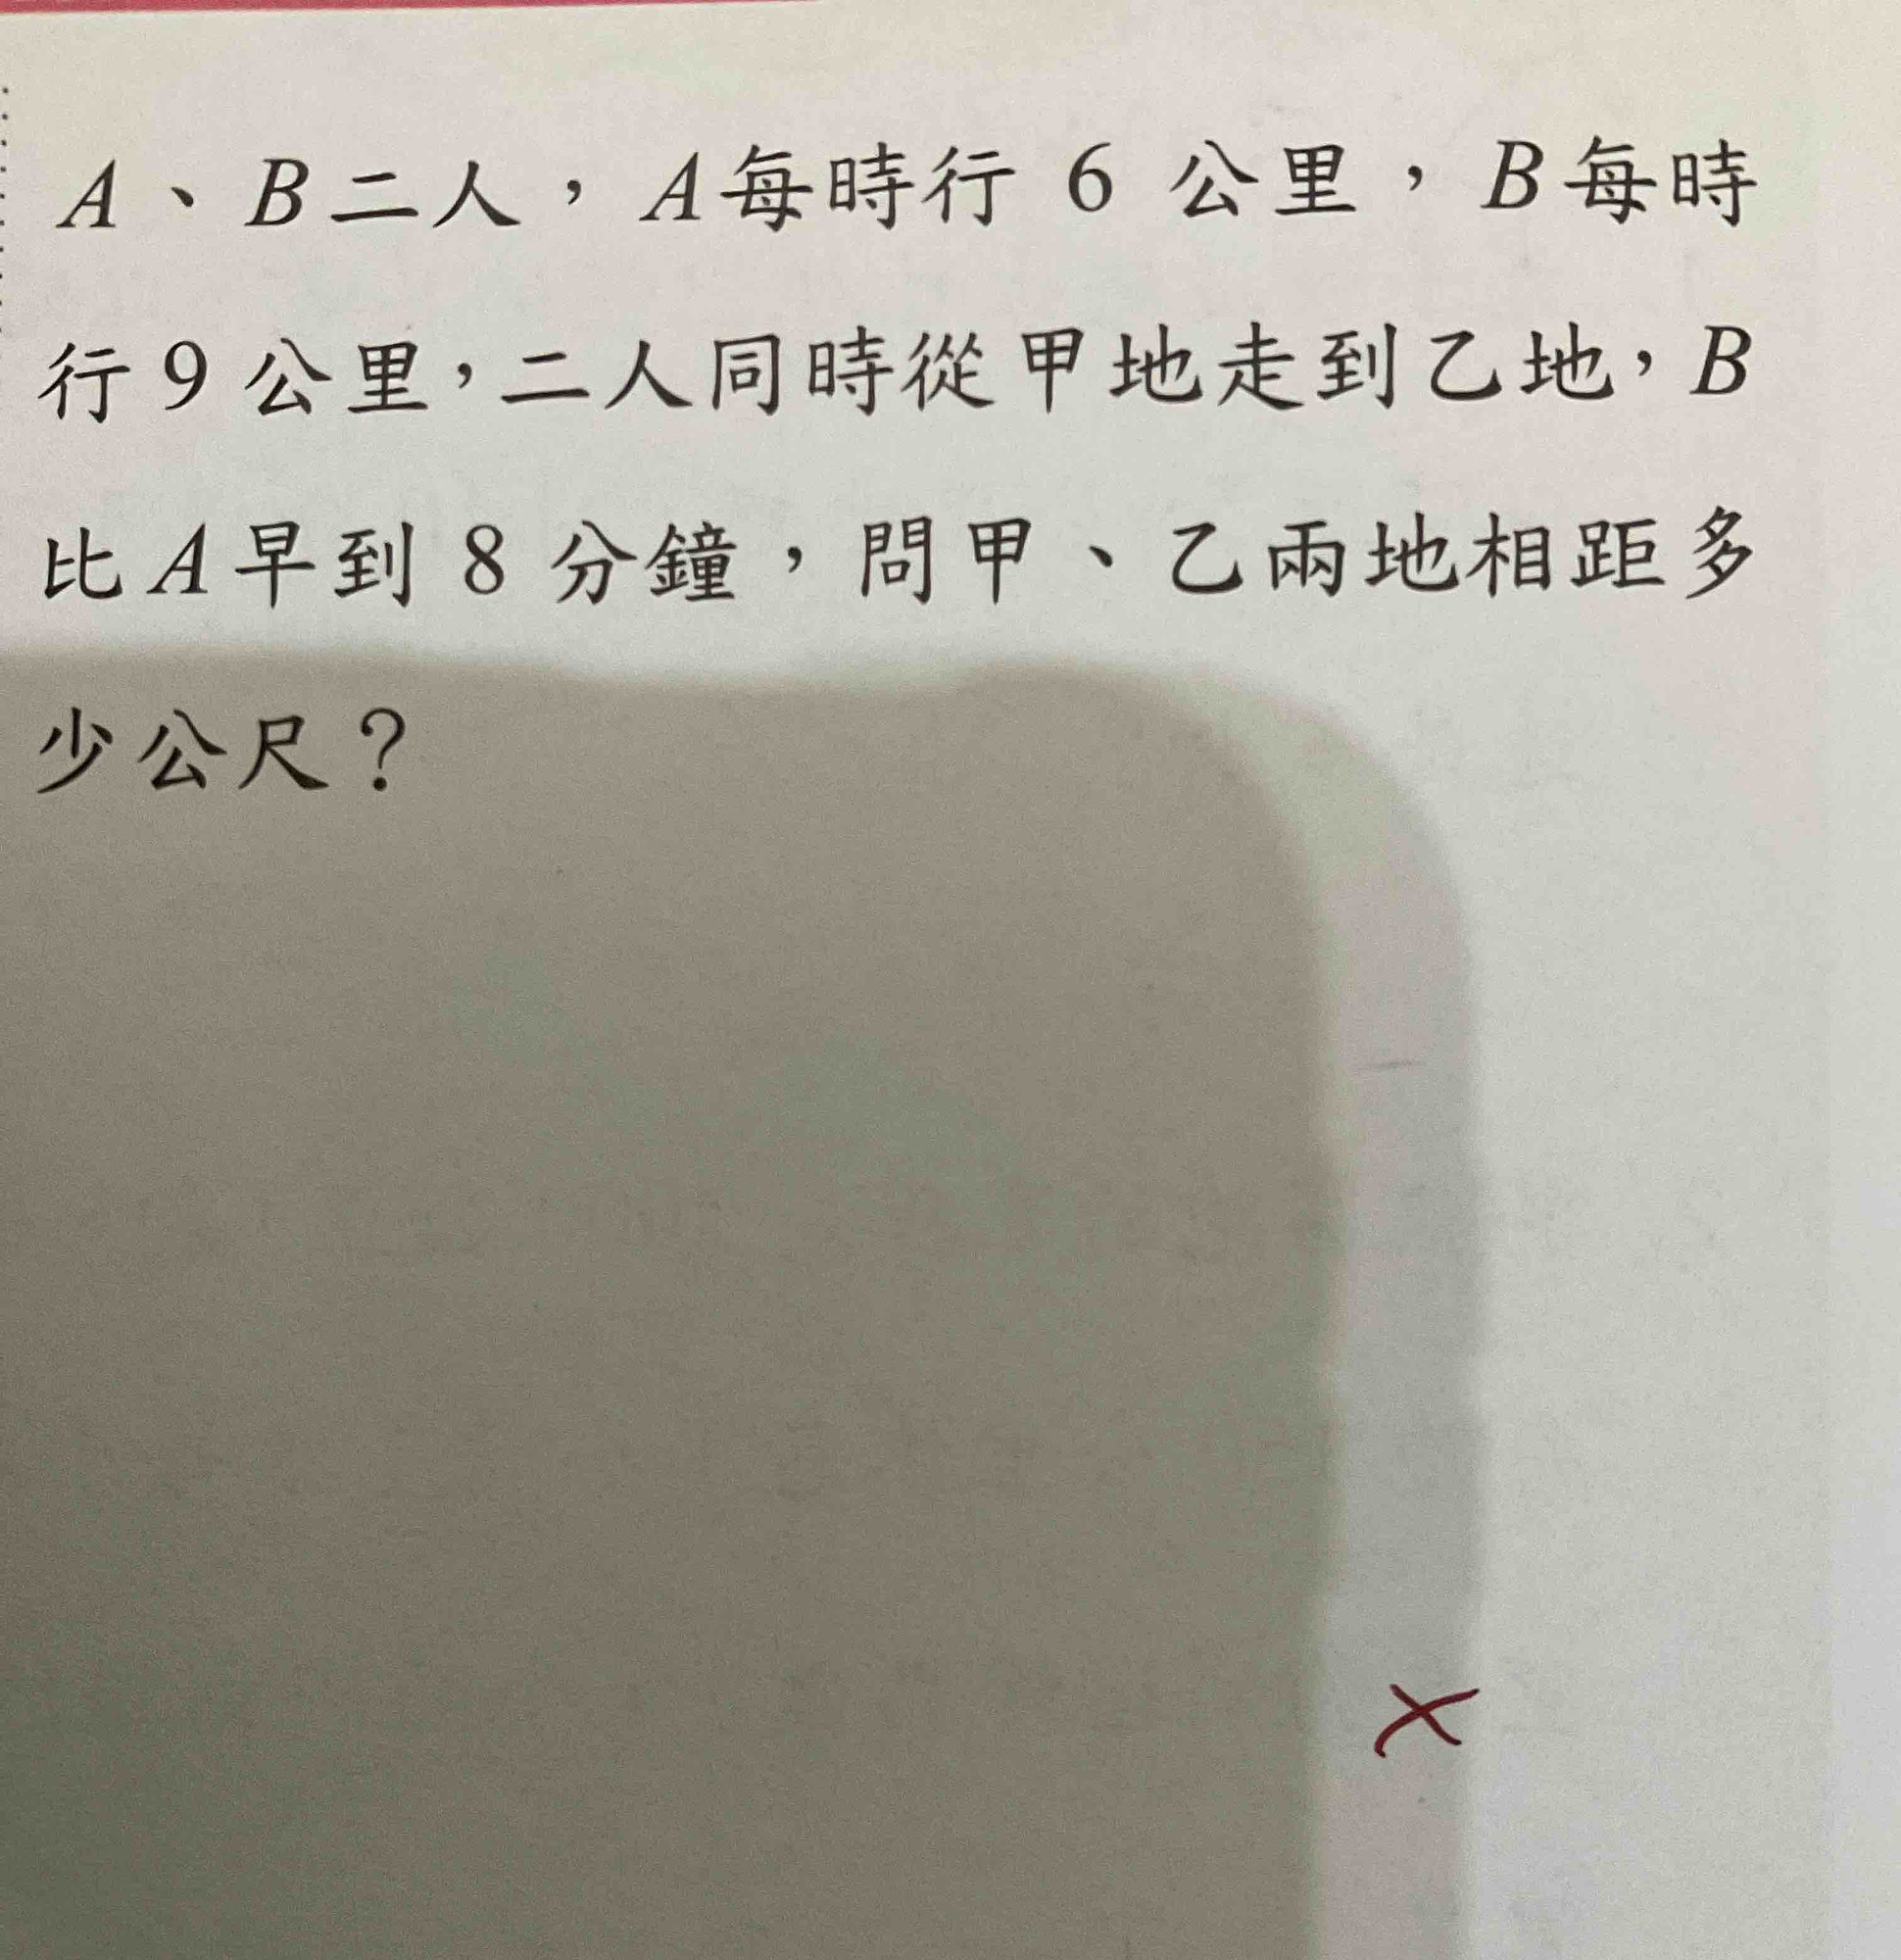 A、B二人，A每時行 6 公里，B每時
行9公里，二人同時從甲地走到乙地，B
比A早到 8 分鐘，問甲、乙兩地相距多
少公尺？